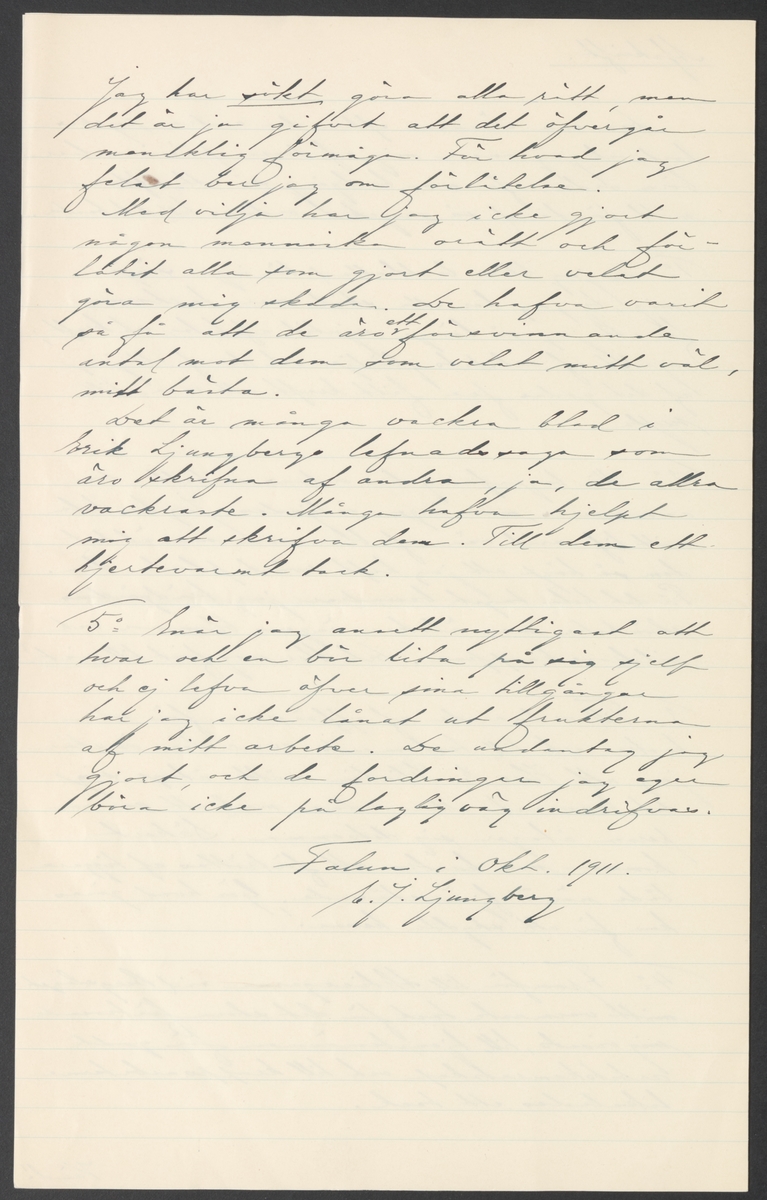 Jag har sökt göra alla rätt, men
det är ju gifvet att det öfvergår
mensklig förmåga. För hvad jag
felat ber jag om förlåtelse.
Med vilja har jag icke gjort
någon menniska orätt och för-
låtit alla som gjort eller velat
göra mig skada. De hafva varit
så få att de äro ett försvinnande
antal mot dem som velat mitt väl,
mitt bästa.
Det är många vackra blad i
Erik Ljungbergs lefnadssaga som
äro skrifna af andra, ja, de allra
vackraste. Många hafva hjelpt
mig att skrifva dem. Till dem ett
hjertevarmt tack.
5o Enär jag ansett nyttigast att
hvar och en bör lita på sig sjelf
och ej lefva öfver sina tillgångar
har jag icke lånat ut frukterna
af mitt arbete. De undantag jag
gjort, och de fordringar jag eger
böra icke på laglig väg indrifvas.
Falun i Okt. 1911.
E. J. Ljungberg